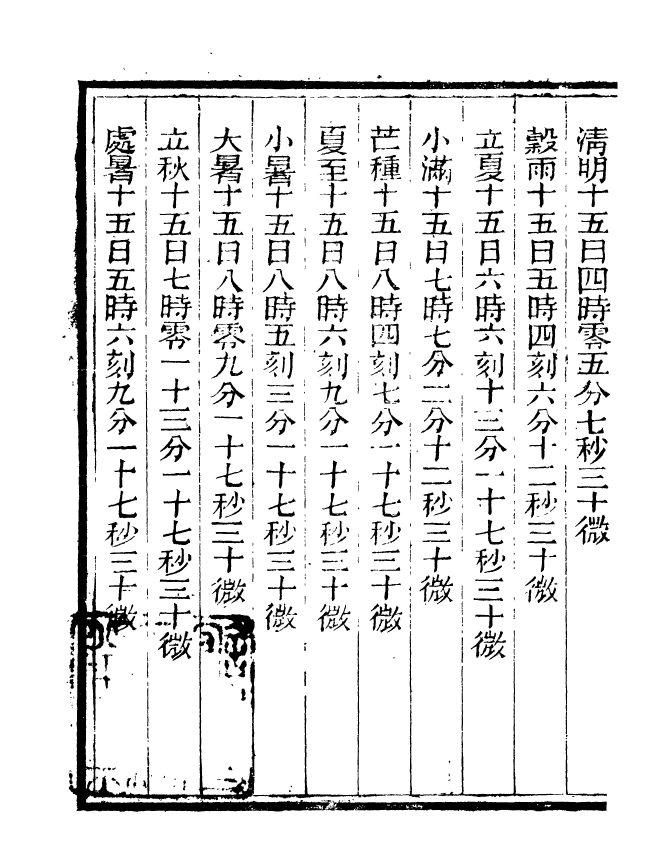 清明十五日四時零五分七秒三十微
穀雨十五日五時四刻六分十二秒三十微
立夏十五日六時六刻十三分一十七秒三十微
小滿十五日七時七分二分十二秒三十微
芒種十五日八時四刻七分一十七秒三十微
夏至十五日八時六刻九分一十七秒三十微
小暑十五日八時五刻三分一十七秒三十微
大暑十五日八時零九分一十七秒三十微
立秋十五日七時零一十三分一十七秒三十微
處暑十五日五時六刻九分一十七秒三十微